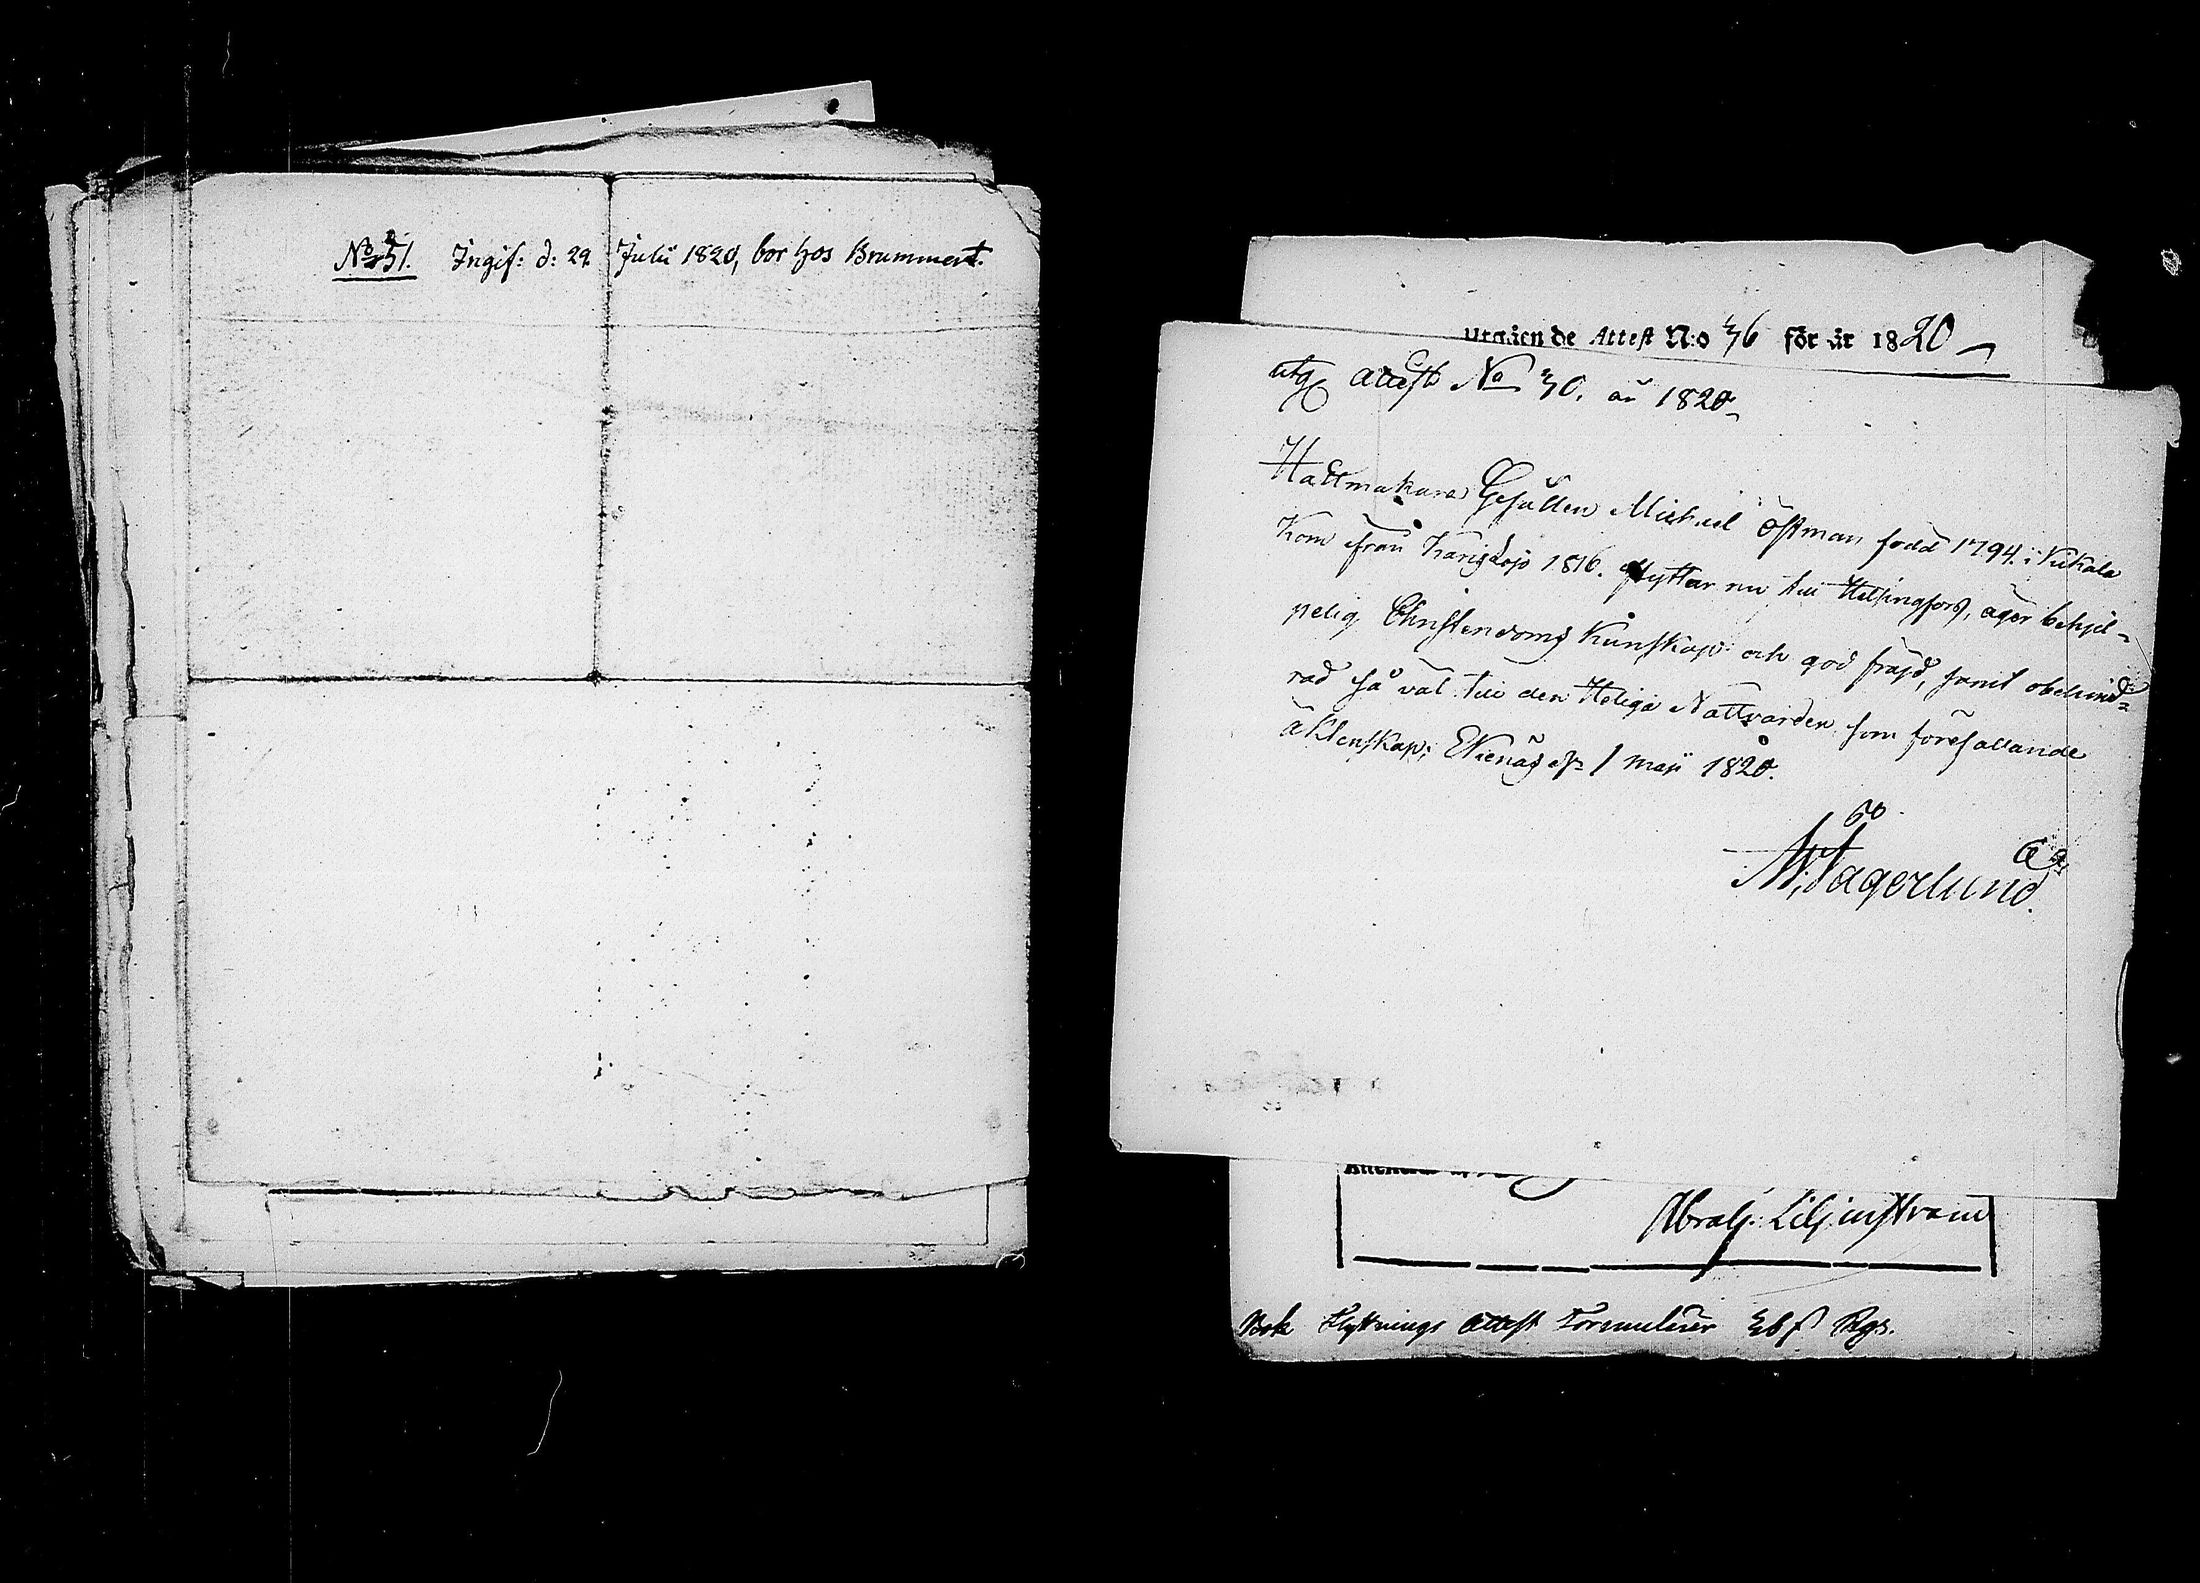 No 51. Ingif: d: 29 Julii 1820, bor hos Brummert.
Utgåen de Attest N:o 36 för år 1820
utg attest No 30. år 1820
Hattmakare Gesällen Michael Östman född 1794. i Kiikala
Kom från Karislojo 1816. flyttar nu till Helsingfors, äger behjel-
pelig Christendoms Kunskap och god fräjd, samt obehind-
rad så väl till den Heliga Nattvarden som förefallande
äktenskap; Ekenäs d. 1 Maji 1820.
Fagerlund.
Abrah: Liljenstrand
Bok Flyttnings Attest Formulärer